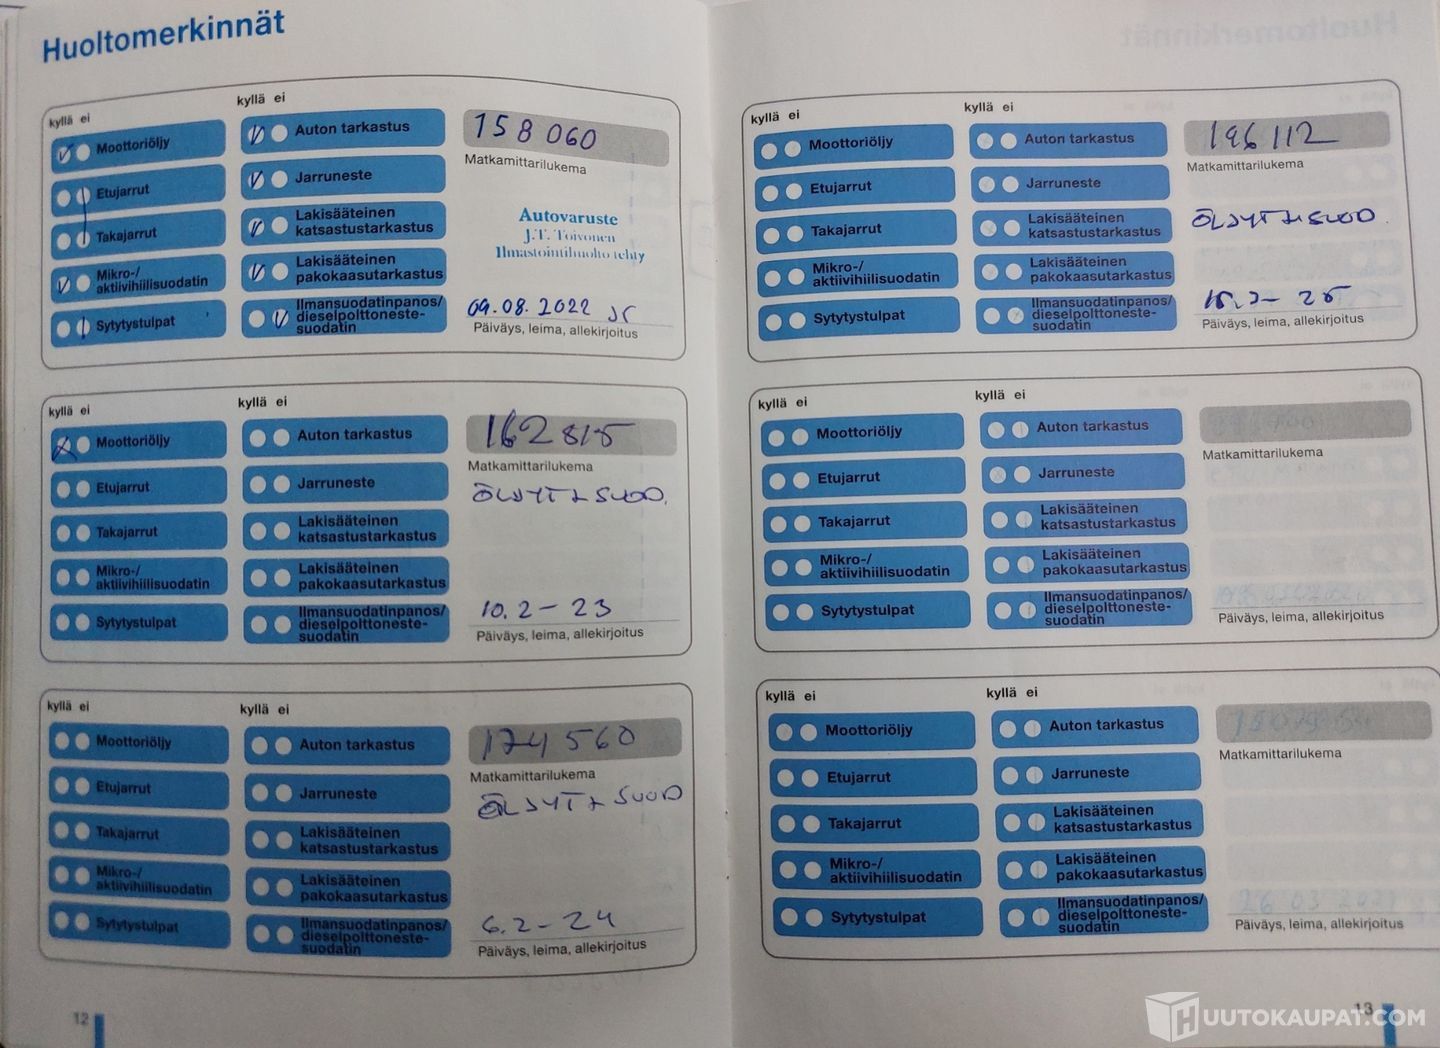 Huoltomerkinnät
kyllä ei
kyllä ei
Moottoriöljy
Etujarrut
Takajarrut
Mikro-/
aktiivihiilisuodatin
Sytytystulpat
Auton tarkastus
Jarruneste
Lakisääteinen
katsastustarkastus
Lakisääteinen
pakokaasutarkastus
Ilmansuodatinpanos/
dieselpolttoneste-
suodatin
158 060
Matkamittarilukema
Autovaruste
J.T. Toivonen
Ilmastointihuolto tehty
09.08.2022
Päiväys, leima, allekirjoitus
kyllä ei
kyllä ei
Moottoriöljy
Etujarrut
Takajarrut
Mikro-/
aktiivihiilisuodatin
Sytytystulpat
Auton tarkastus
Jarruneste
Lakisääteinen
katsastustarkastus
Lakisääteinen
pakokaasutarkastus
Ilmansuodatinpanos/
dieselpolttoneste-
suodatin
162 815
Matkamittarilukema
ÖLJYT + SUOD.
10.2-23
Päiväys, leima, allekirjoitus
kyllä ei
kyllä ei
Moottoriöljy
Etujarrut
Takajarrut
Mikro-/
aktiivihiilisuodatin
Sytytystulpat
Auton tarkastus
Jarruneste
Lakisääteinen
katsastustarkastus
Lakisääteinen
pakokaasutarkastus
Ilmansuodatinpanos/
dieselpolttoneste-
suodatin
174 560
Matkamittarilukema
ÖLJYT + SUOD
6.2-24
Päiväys, leima, allekirjoitus
12
kyllä ei
kyllä ei
Moottoriöljy
Etujarrut
Takajarrut
Mikro-/
aktiivihiilisuodatin
Sytytystulpat
Auton tarkastus
Jarruneste
Lakisääteinen
katsastustarkastus
Lakisääteinen
pakokaasutarkastus
Ilmansuodatinpanos/
dieselpolttoneste-
suodatin
196112
Matkamittarilukema
ÖLJYT + SUOD.
Päiväys, leima, allekirjoitus
kyllä ei
kyllä ei
Moottoriöljy
Etujarrut
Takajarrut
Mikro-/
aktiivihiilisuodatin
Sytytystulpat
Auton tarkastus
Jarruneste
Lakisääteinen
katsastustarkastus
Lakisääteinen
pakokaasutarkastus
Ilmansuodatinpanos/
dieselpolttoneste-
suodatin
Matkamittarilukema
Päiväys, leima, allekirjoitus
kyllä ei
kyllä ei
Moottoriöljy
Etujarrut
Takajarrut
Mikro-/
aktiivihiilisuodatin
Sytytystulpat
Auton tarkastus
Jarruneste
Lakisääteinen
katsastustarkastus
Lakisääteinen
pakokaasutarkastus
Ilmansuodatinpanos/
dieselpolttoneste-
suodatin
Matkamittarilukema
Päiväys, leima, allekirjoitus
13
HUUTOKAUPAT.COM